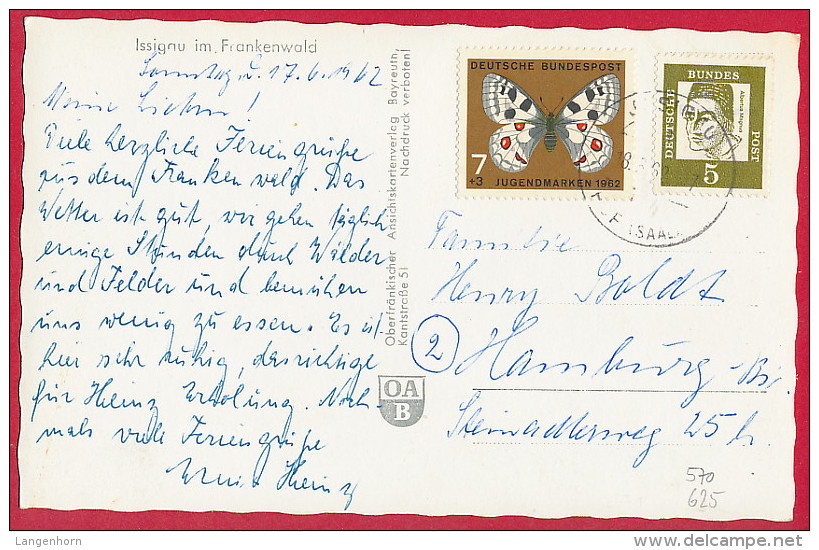 Issigau im Frankenwald
Sonntag, d. 17.6.1962
Meine Lieben!
Viele herzliche Feriengrüße
aus dem Frankenwald. Das
Wetter ist gut, wir gehen täglich
einige Stunden durch Wälder
und Felder und bemühen
uns wenig zu essen. Es ist
hier sehr ruhig, das richtige
für Heinz Erholung. Noch-
mals viele Feriengrüße
Heinz
Oberfränkischer Ansichtskartenverlag Bayreuth
Kantstraße 51 Nachdruck verboten!
OA
B
DEUTSCHE BUNDESPOST
7
+3 JUGENDMARKEN 1962
DEUTSCHE
BUNDES
POST
Albertus Magnus
5
(SAALE)
Familie
Henry Boldt
2 Hamburg-
Steinadlerweg 25 b.
570
625
Langenhorn
delcampe.net